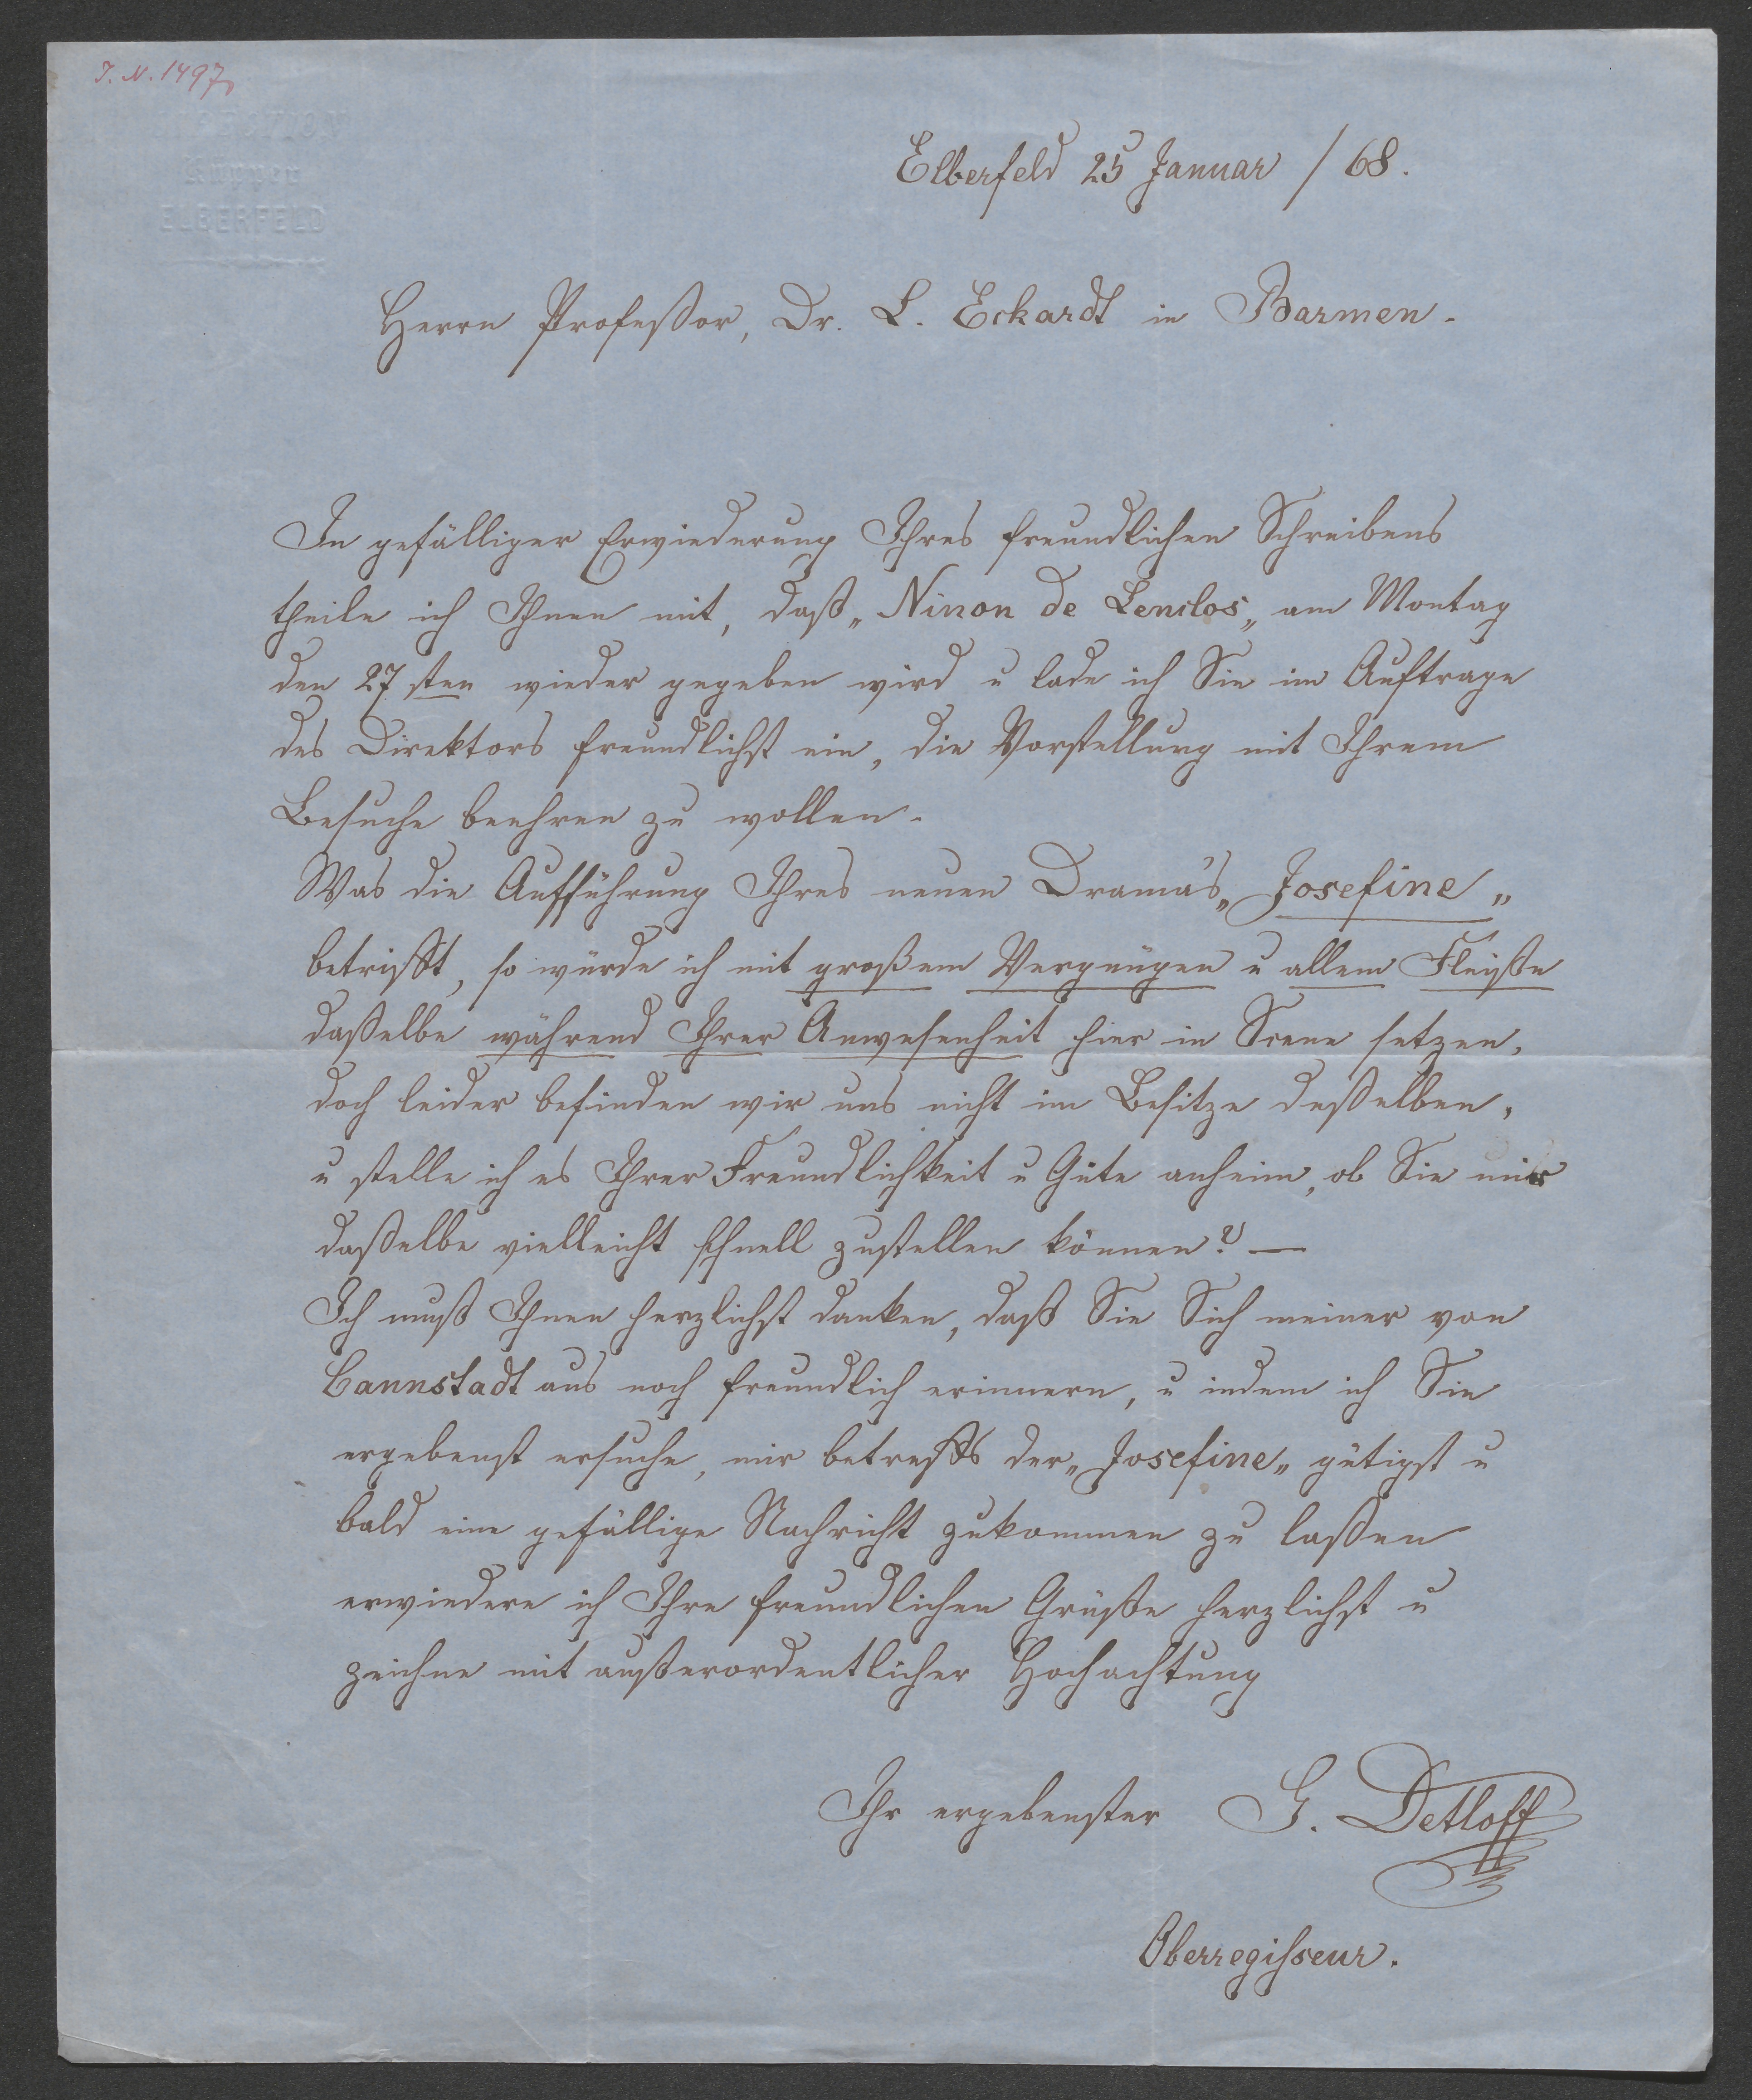 J. N. 1497
ELBERFELD
Elberfeld 25 Januar / 68.
Herrn Profeßor, Dr. L. Eckardt in Barmen.
In gefälliger Erwiederung Ihres freundlichen Schreibens
theile ich Ihnen mit, daß „Ninon de Lenclos„ am Montag
den 27 sten wieder gegeben wird u lade ich Sie im Auftrage
des Direktors freundlichst ein, die Vorstellung mit Ihrem
Besuche beehren zu wollen.
Was die Aufführung Ihres neuen Drama's „Josefine„
betrifft, so würde ich mit großem Vergnügen u allem Fleiße
daßelbe während Ihrer Anwesenheit hier in Scene setzen,
doch leider befinden wir uns nicht im Besitze deßelben,
u stelle ich es Ihrer Freundlichkeit u Güte anheim, ob Sie mir
daßelbe vielleicht schnell zustellen können? —
Ich muß Ihnen herzlichst danken, daß Sie Sich meiner von
Cannstadt aus noch freundlich erinnern, u indem ich Sie
ergebenst ersuche, mir betreffs der „Josefine„ gütigst u
bald eine gefällige Nachricht zukommen zu laßen
erwiedere ich Ihre freundlichen Grüße herzlichst u
zeichne mit außerordentlicher Hochachtung
Ihr ergebenster G. Detloff
Oberregisseur.